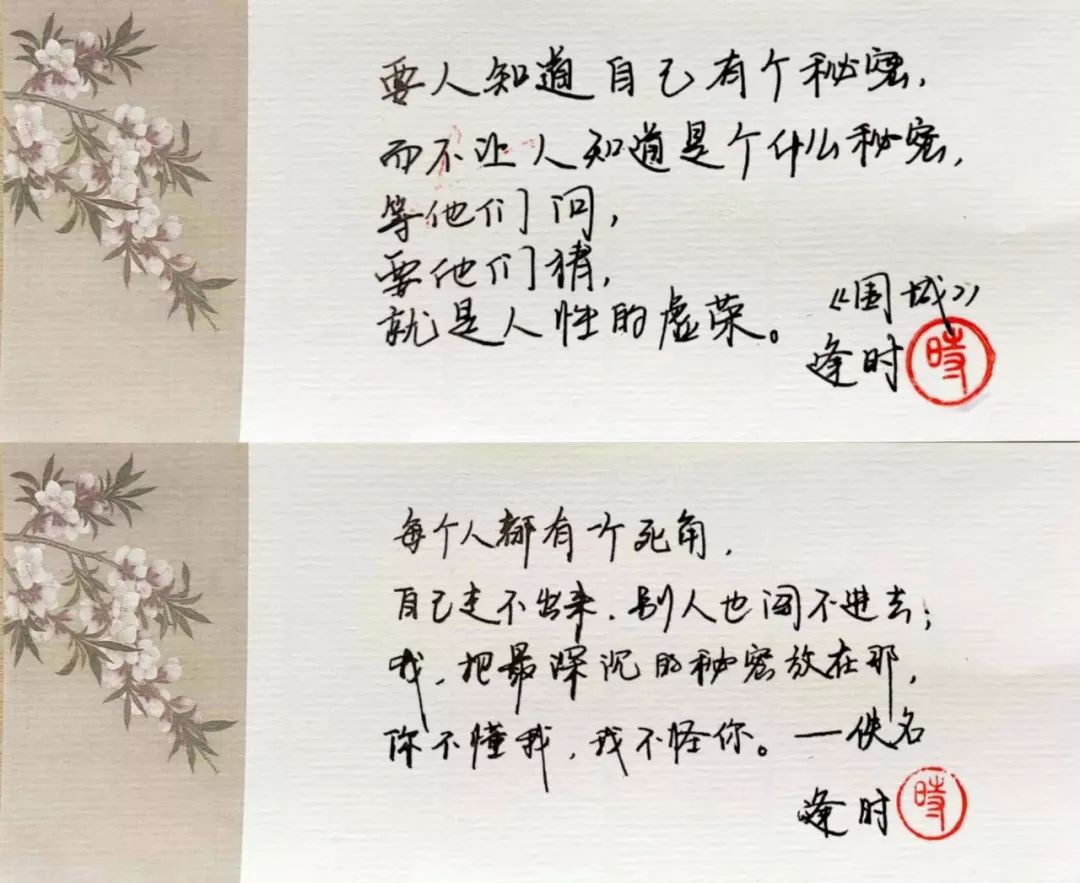 要人知道自己有个秘密，
而不让人知道是个什么秘密，
等他们问，
要他们猜，
就是人性的虚荣。
《围城》
逢时
時
每个人都有一个死角，
自己走不出来，别人也闯不进去；
我，把最深沉的秘密放在那，
你不懂我，我不怪你。—佚名
逢时
時